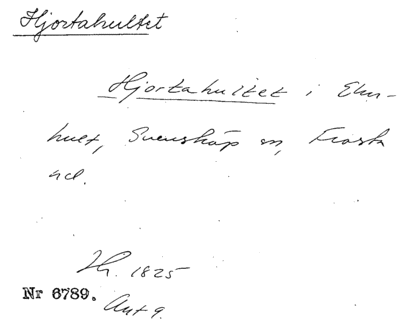 Hjortahultet
Hjortahultet i Elm-
hult, Svenskåp sn, Frosta
hd.
Hr. 1825
Nr 6789.
Ant 9.